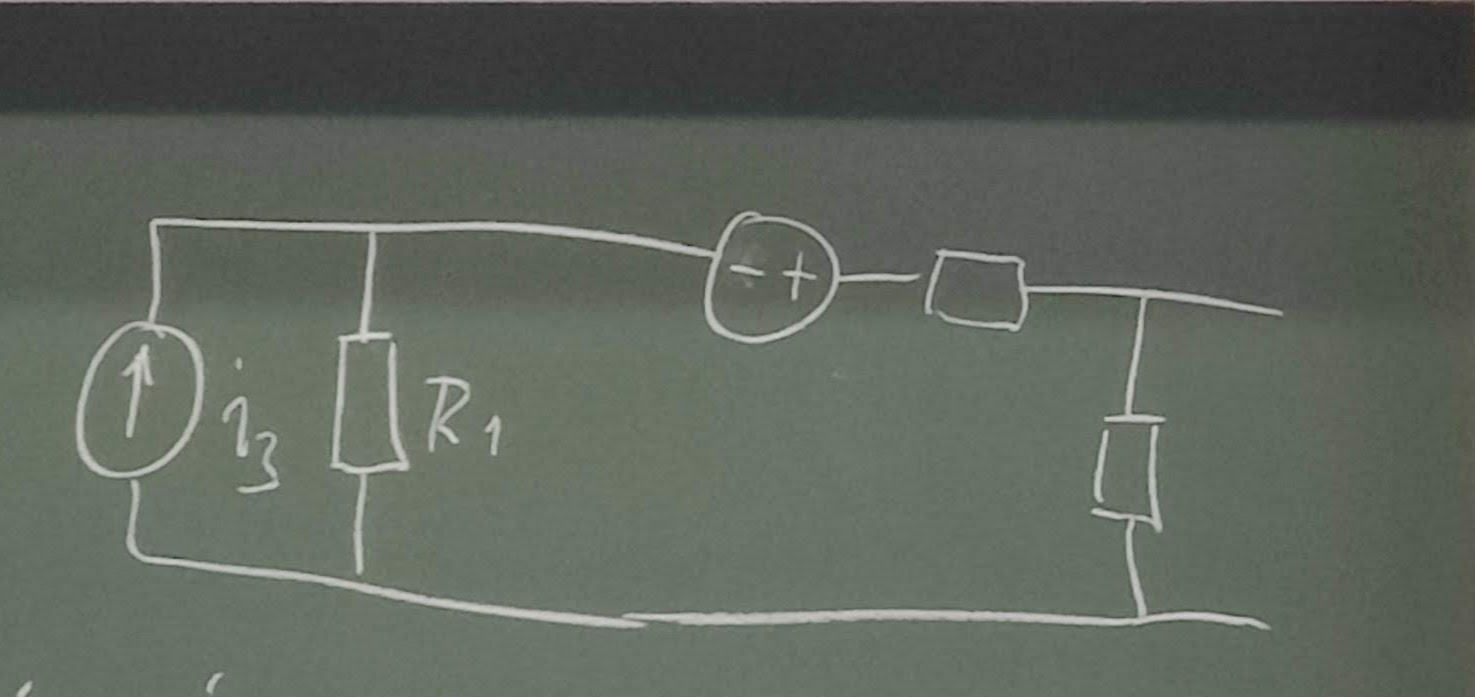 - +
i₃
R₁